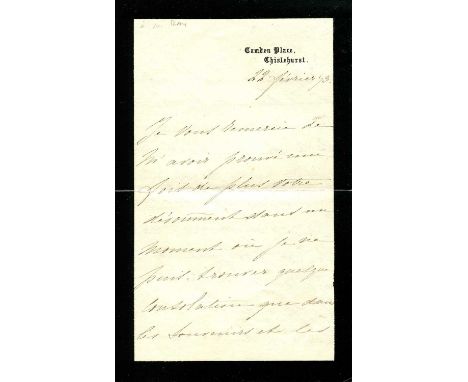 Camden Place,
Chislehurst.
22 février 73
Je vous remercie de
m'avoir prouvé une
fois de plus votre
dévouement dans un
moment où je ne
puis trouver quelque
consolation que dans
les souvenirs et les